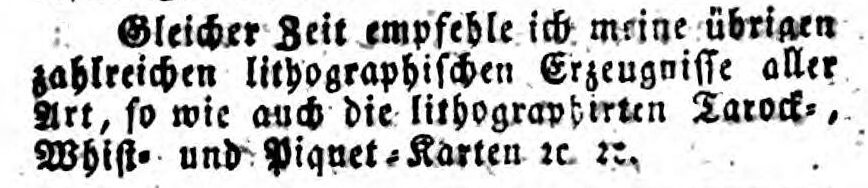 Gleicher Zeit empfehle ich meine übrigen
zahlreichen lithographiſchen Erzeugniſſe aller
Art, ſo wie auch die lithographirten Tarock-,
Whiſt- und Piquet-Karten ꝛc ꝛc.